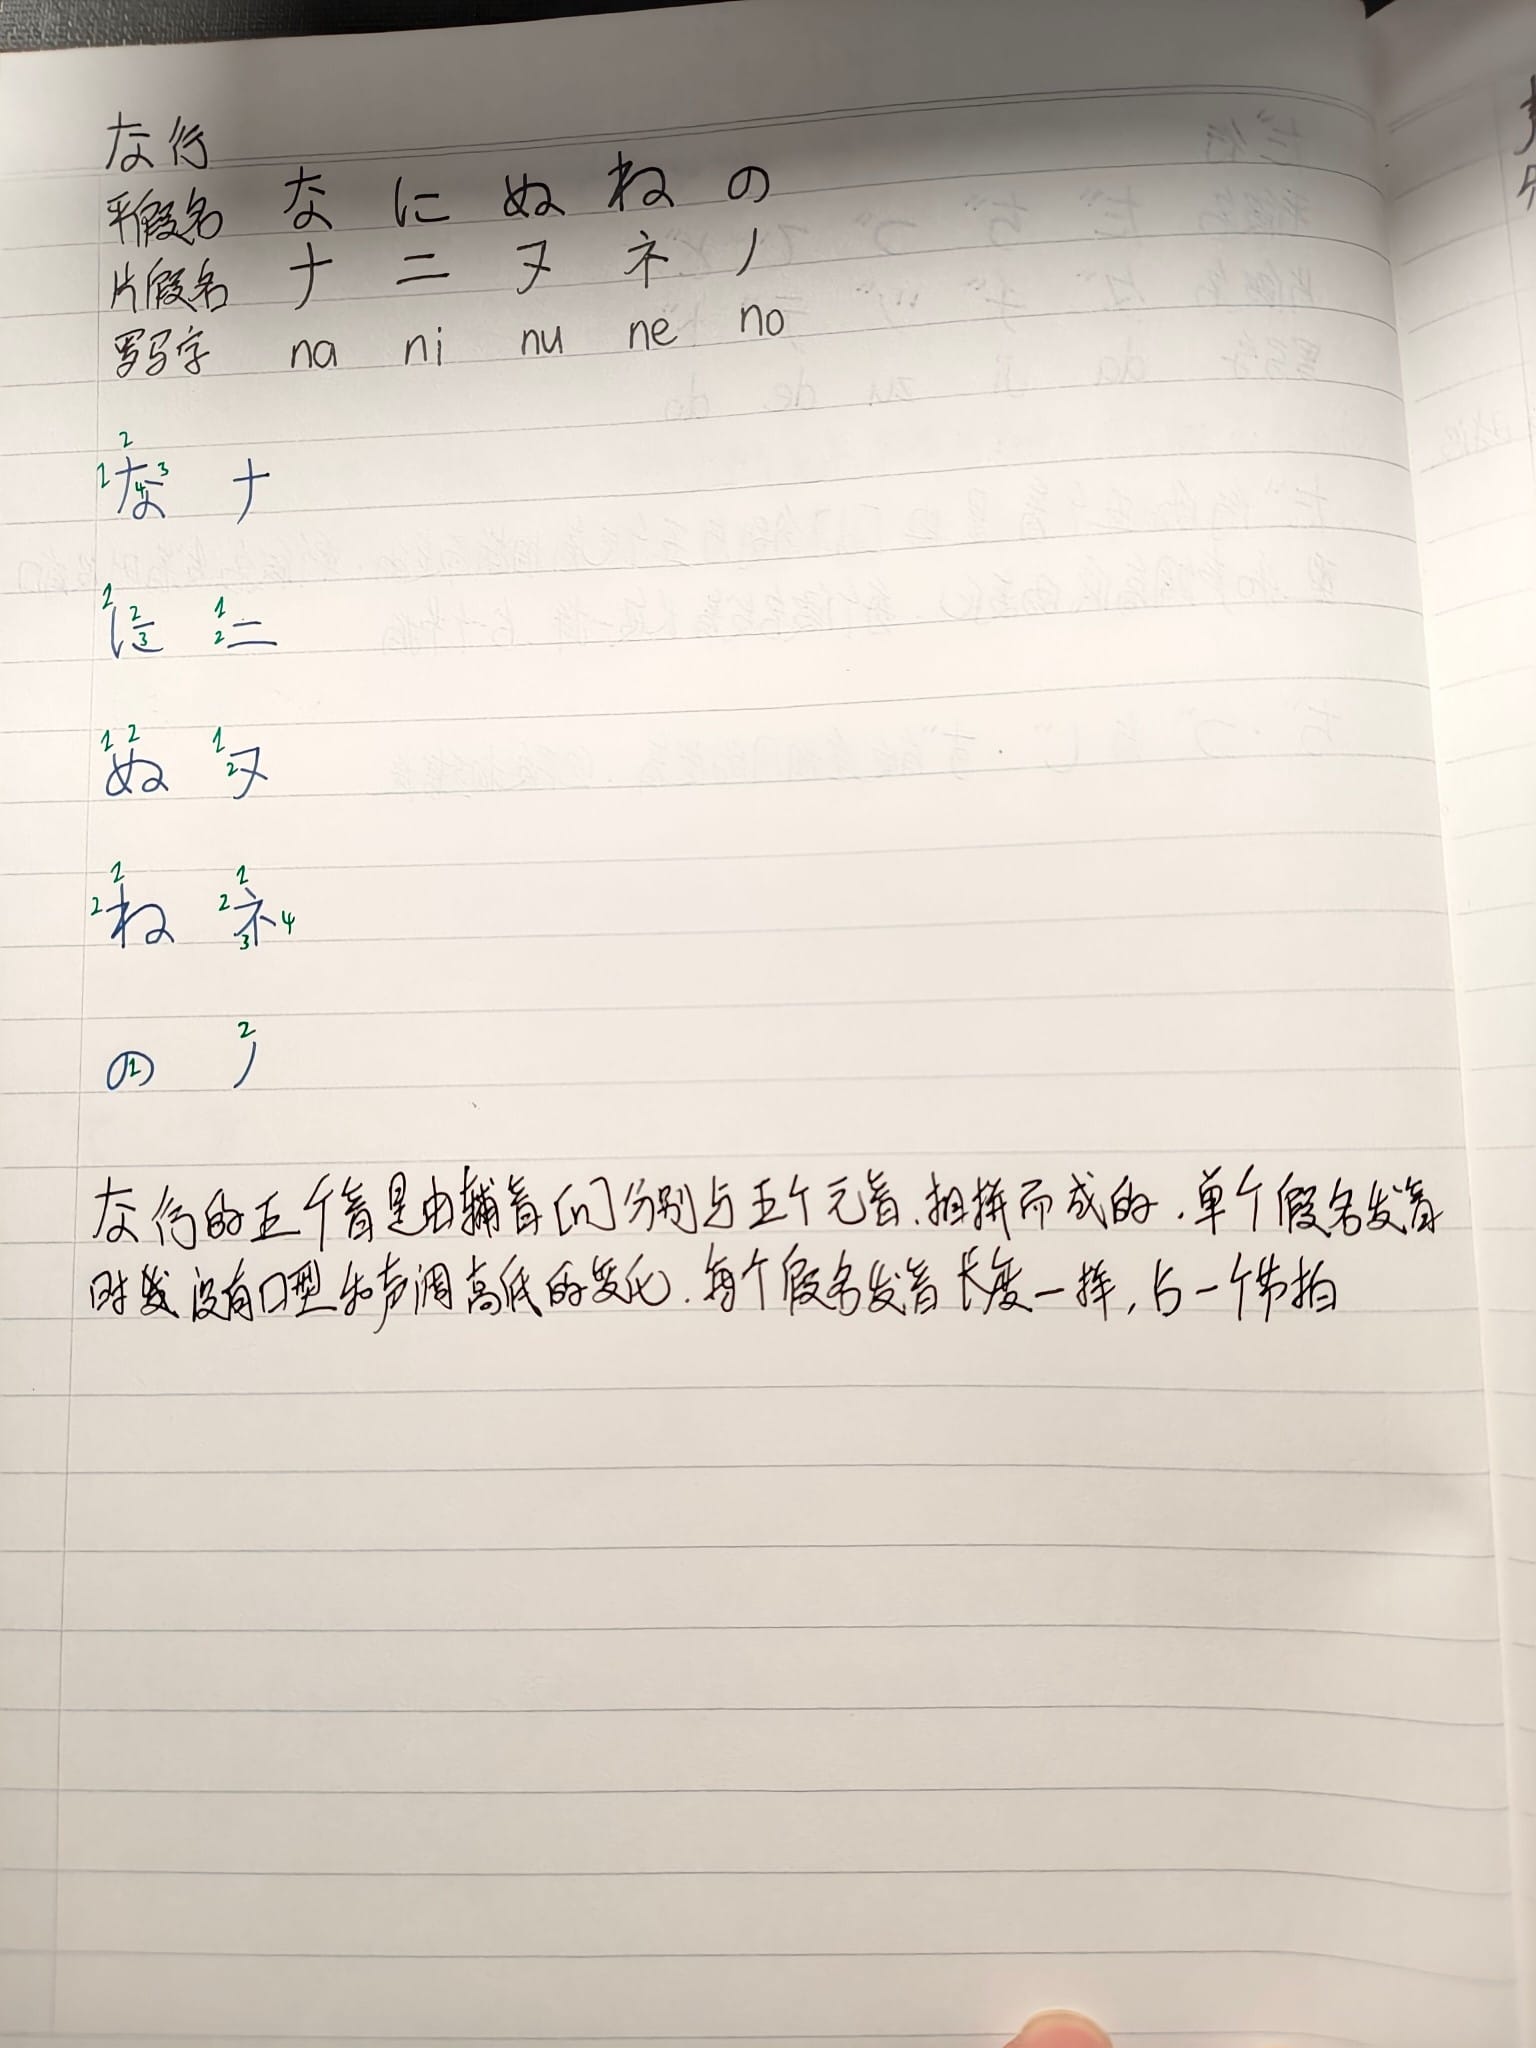 な行
平假名 な に ぬ ね の
片假名 ナ ニ ヌ ネ ノ
罗马字 na ni nu ne no
2
1 な 3 4 ナ
1 に 2 3 1 2 ニ
1 2 ぬ 1 2 ヌ
2 2 ね 1 2 ネ 3 4
の 1 2 ノ
な行的五个音是由辅音[n]分别与五个元音、相拼而成的.单个假名发音
时 没有口型和声调高低的变化.每个假名发音长度一样,占一个节拍